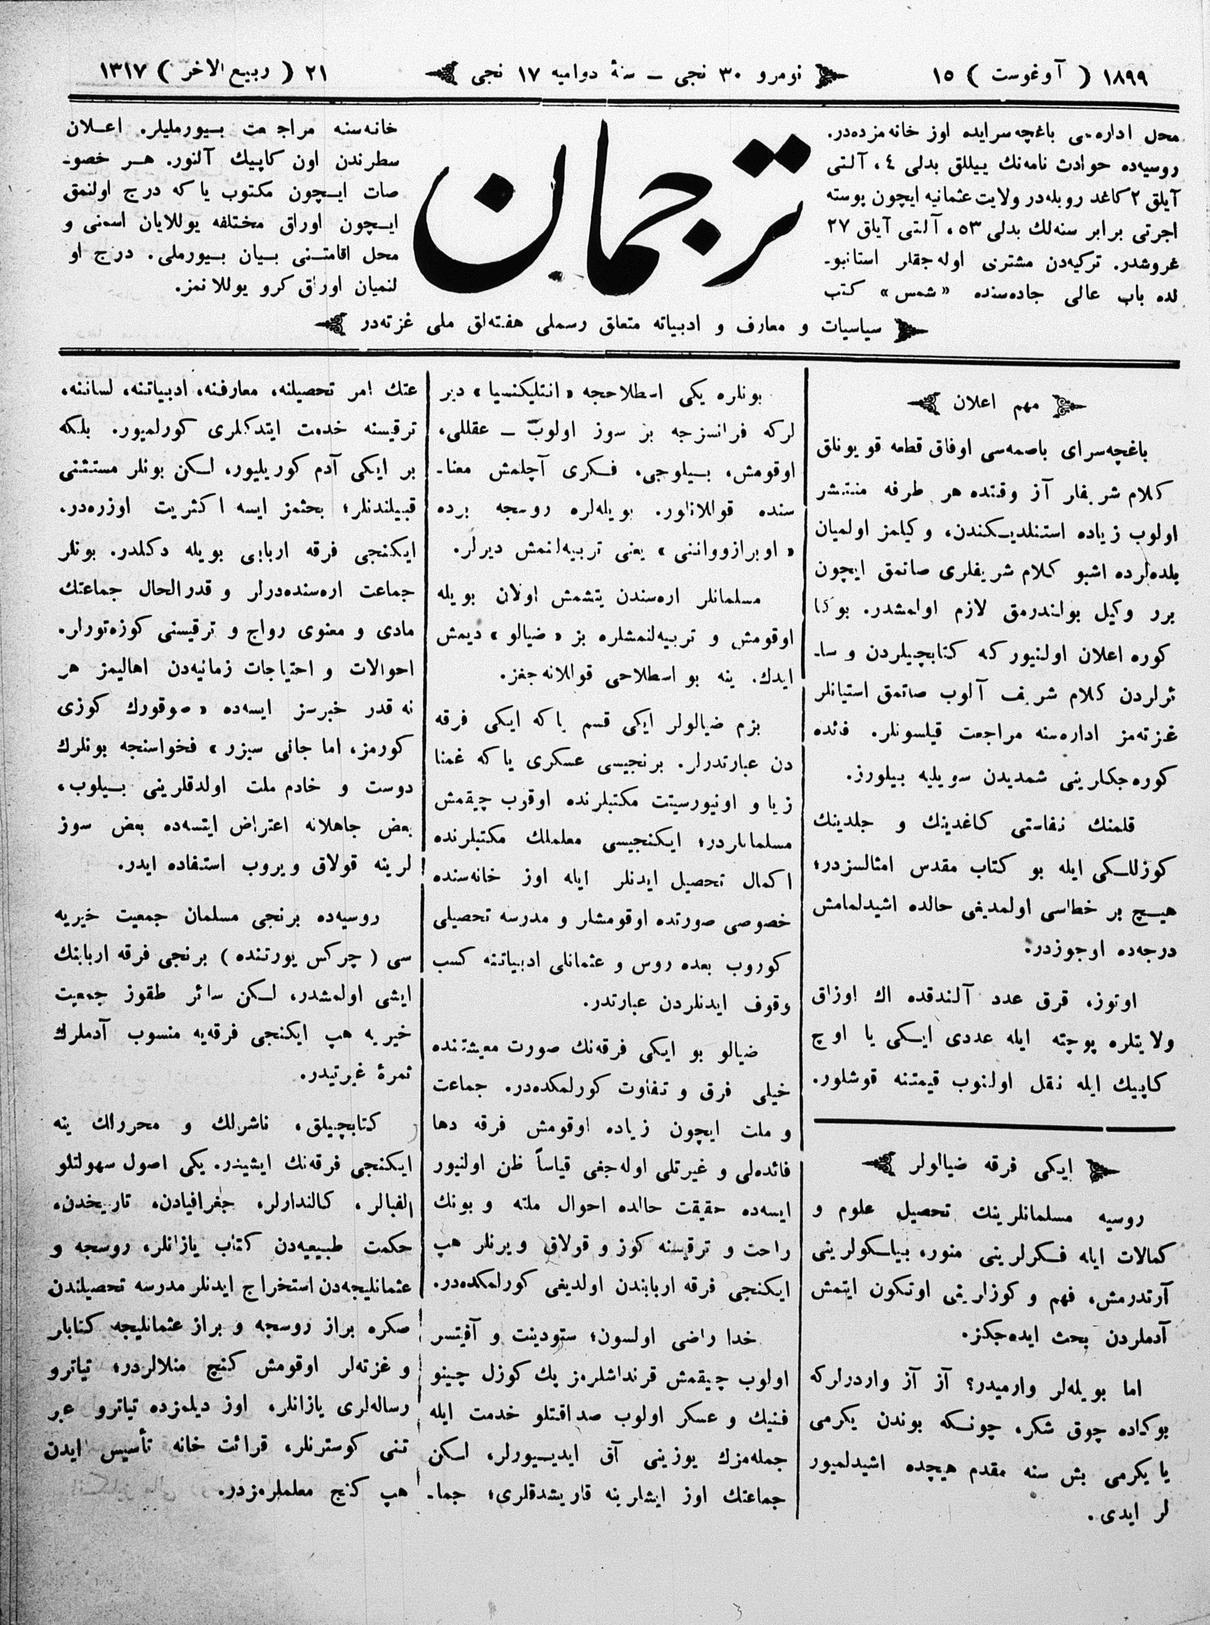 ١٨٩٩ ( آوغوست ) ١٥
نومرو ٣٠ نجی — سنهٔ دوامیه ١٧ نجی
٢١ ( ربیع الاخر ) ١٣١٧
محل اداره‌سی باغچه‌سرایده اوز خانه‌مزده‌در.
روسیه‌ده حوادث نامه‌نك ییللق بدلی ٤، آلتی
آیلق ٢ كاغد روبله‌در ولایت عثمانیه ایچون پوسته
اجرتی برابر سنه‌لك بدلی ٥٣، آلتی آیلق ٢٧
غروشدر. تركیه‌دن مشتری اوله‌جقلر استانبو-
لده باب عالی جاده‌سنده «شمس» كتب
ترجمان
خانه‌سنه مراجعت بیورملیلر. اعلان
سطرندن اون كاپیك آلنور. هر خصو-
صات ایچون مكتوب یا كه درج اولنمق
ایچون اوراق مختلفه یوللایان اسمنی و
محل اقامتنی بیان بیورملی. درج او
لنمیان اوراق كرو یوللانمز.
سیاسیات و معارف و ادبیاته متعلق رسملی هفته‌لق ملی غزته‌در
مهم اعلان
باغچه‌سرای باصمه‌سی اوفاق قطعه قویونلق
كلام شریفلر آز وقتده هر طرفه منتشر
اولوب زیاده استنلدیكندن، وكیلمز اولمیان
بلده‌لرده اشبو كلام شریفلری صاتمق ایچون
برر وكیل بولندرمق لازم اولمشدر. بوكا
كوره اعلان اولنیور كه كتابچیلردن و سا-
ئرلردن كلام شریف آلوب صاتمق استیانلر
غزته‌مز اداره‌سنه مراجعت قیلسونلر. فائده
كوره‌جكلرینی شمدیدن سویلیه بیلورز.
قلمنك نفاستی كاغدینك و جلدینك
كوزللكی ایله بو كتاب مقدس امثالسزدر؛
هیچ بر خطاسی اولمدیغی حالده اشیدلمامش
درجه‌ده اوجوزدر.
اوتوز، قرق عدد آلندقده اك اوزاق
ولایتلره پوچته ایله عددی ایكی یا اوچ
كاپیك ایله نقل اولنوب قیمتنه قوشلور.
ایكی فرقه ضیالولر
روسیه مسلمانلرینك تحصیل علوم و
كمالات ایله فكرلرینی منور، بیلكولرینی
آرتدرمش، فهم و كوزلریئی اوتكون ایتمش
آدملردن بحث ایده‌جكز.
اما بویله‌لر وارمیدر؟ آز آز واردرلركه
بوكاده چوق شكر، چونكه بوندن یكرمی
یا یكرمی بش سنه مقدم هیچده اشیدلمیور
لر ایدی.
بونلره یكی اصطلاحجه «انتلیكنسیا» دیر
لركه فرانسزجه بر سوز اولوب — عقللی،
اوقومش، بیلوجی، فكری آچلمش معنا-
سنده قوللانلور. بویله‌لره روسجه برده
«اوبرازوواننی» یعنی تربیه‌لنمش دیرلر.
مسلمانلر اره‌سندن یتشمش اولان بویله
اوقومش و تربیه‌لنمشلره بز «ضیالو» دیمش
ایدك. ینه بو اسطلاحی قوللانه‌جغز.
بزم ضیالولر ایكی قسم یا كه ایكی فرقه
دن عبارتدرلر. برنجیسی عسكری یا كه غمنا
زیا و اونیورسیتت مكتبلرنده اوقوب چیقمش
مسلمانلردر؛ ایكنجیسی معلملك مكتبلرنده
اكمال تحصیل ایدنلر ایله اوز خانه‌سنده
خصوصی صورتده اوقومشلر و مدرسه تحصیلی
كوروب بعده روس و عثمانلی ادبیاتنه كسب
وقوف ایدنلردن عبارتدر.
ضیالو بو ایكی فرقه‌نك صورت معیشتنده
خیلی فرق و تفاوت كورلمكده‌در. جماعت
و ملت ایچون زیاده اوقومش فرقه دها
فائده‌لی و غیرتلی اوله‌جغی قیاساً ظن اولنیور
ایسه‌ده حقیقت حالده احوال ملته و بونك
راحت و ترقیسنه كوز و قولاق ویرنلر هپ
ایكنجی فرقه اربابندن اولدیغی كورلمكده‌در.
خدا راضی اولسون؛ ستودینت و آفیتسر
اولوب چیقمش قرنداشلرمز پك كوزل چینو
فنیك و عسكر اولوب صداقتلو خدمت ایله
جمله‌مزك یوزینی آق ایدیورلر، لكن
جماعتك اوز ایشلرینه قاریشدقلری؛ جما-
عتك امر تحصیلنه، معارفنه، ادبیاتنه، لساننه،
ترقیسنه خدمت ایتدكلری كورلمیور. بلكه
بر ایكی آدم كوریلیور، لكن بونلر مستثنی
قبیلندنلر؛ بحثمز ایسه اكثریت اوزره‌در.
ایكنجی فرقه اربابی بویله دكلدر. بونلر
جماعت اره‌سنده‌درلر و قدرالحال جماعتك
مادی و معنوی رواج و ترقیسنی كوزه‌تورلر.
احوالات و احتیاجات زمانیه‌دن اهالیمز هر
نه قدر خبرسز ایسه‌ده «صوقورك كوزی
كورمز، اما جانی سیزر» فخواسنجه بونلرك
دوست و خادم ملت اولدقلرینی بیلوب،
بعض جاهلانه اعتراض ایتسه‌ده بعض سوز
لرینه قولاق ویروب استفاده ایدر.
روسیه‌ده برنجی مسلمان جمعیت خیریه
سی ( چركس یورتنده ) برنجی فرقه اربابنك
ایشی اولمشدر، لكن سائر طقوز جمعیت
خیریه هپ ایكنجی فرقه‌یه منسوب آدملرك
ثمرهٔ غیرتیدر.
كتابچیلق، ناشرلك و محررلك ینه
ایكنجی فرقه‌نك ایشیدر. یكی اصول سهولتلو
الفبالر، كالندارلر، جغرافیادن، تاریخدن،
حكمت طبیعیه‌دن كتاب یازانلر، روسجه و
عثمانلیجه‌دن استخراج ایدنلر مدرسه تحصیلندن
صكره براز روسجه و براز عثمانلیجه كتابلر
و غزته‌لر اوقومش كنج منلالردر؛ تیاترو
رساله‌لری یازانلر، اوز دیلمزده تیاترو عبر
تنی كوسترنلر، قرائت خانه تأسیس ایدن
هپ كنج معلملرمزدر.